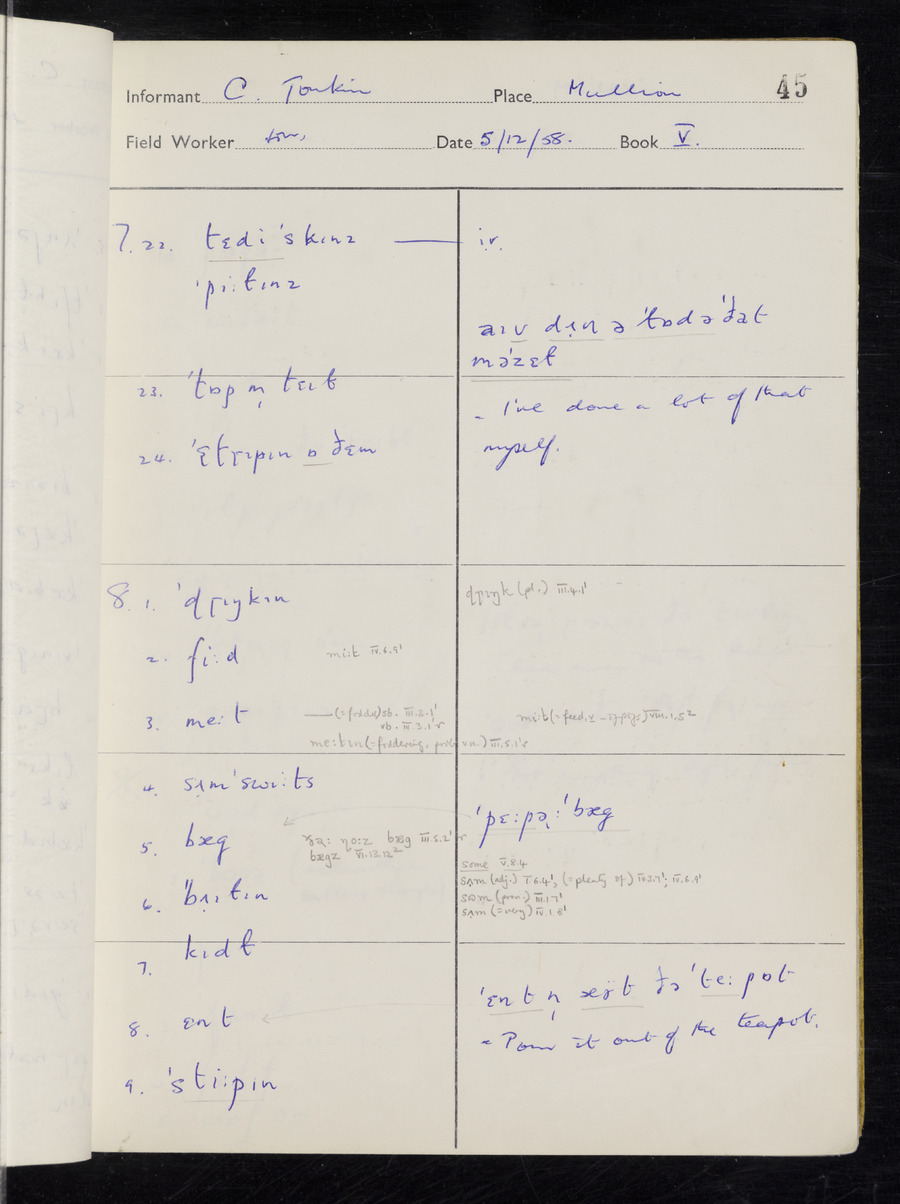 45
Informant C. Tonkin Place Mullion
Field Worker Date 5/12/58. Book V.
7. 22. tɛdi ˈskɪnz — i.r.
ˈpiːtɪnz
aɪv dʌn ə ˈlɒd ə ˈðat
məˈzɛɫ
23. ˈtɒp n̩ tɛɪɫ
= I've done a lot of that
myself.
24. ˈstrɪpɪn ɒ ðɛm
8. 1. ˈdrɪŋkɪn
drɪŋk (pl.) III.4.1'
2. fiːd
miːt IV.6.9'
3. meːt
— (=fodder) sb. III.3.1'
vb. IV.3.1'r
meːtɪn (=foddering, vn.) III.5.1'r
VIII.1.5²
4. sʌmˈswiːts
5. bæg
ˈpɛːpəˈbæg
bæg III.5.2'r
bægz VI.13.12²
some V.8.4
sʌm (adj.) I.6.4', (=plenty of) IV.3.7', IV.6.9'
sʌm (pron.) III.1.7'
sʌm (=very) IV.1.8'
6. ˈbʌɪtɪn
7. kɪdɫ
8. ɛnt
ˈɛnt n̩ æʏt ðə ˈteːpɒt
= Pour it out of the teapot.
9. ˈstiːpɪn